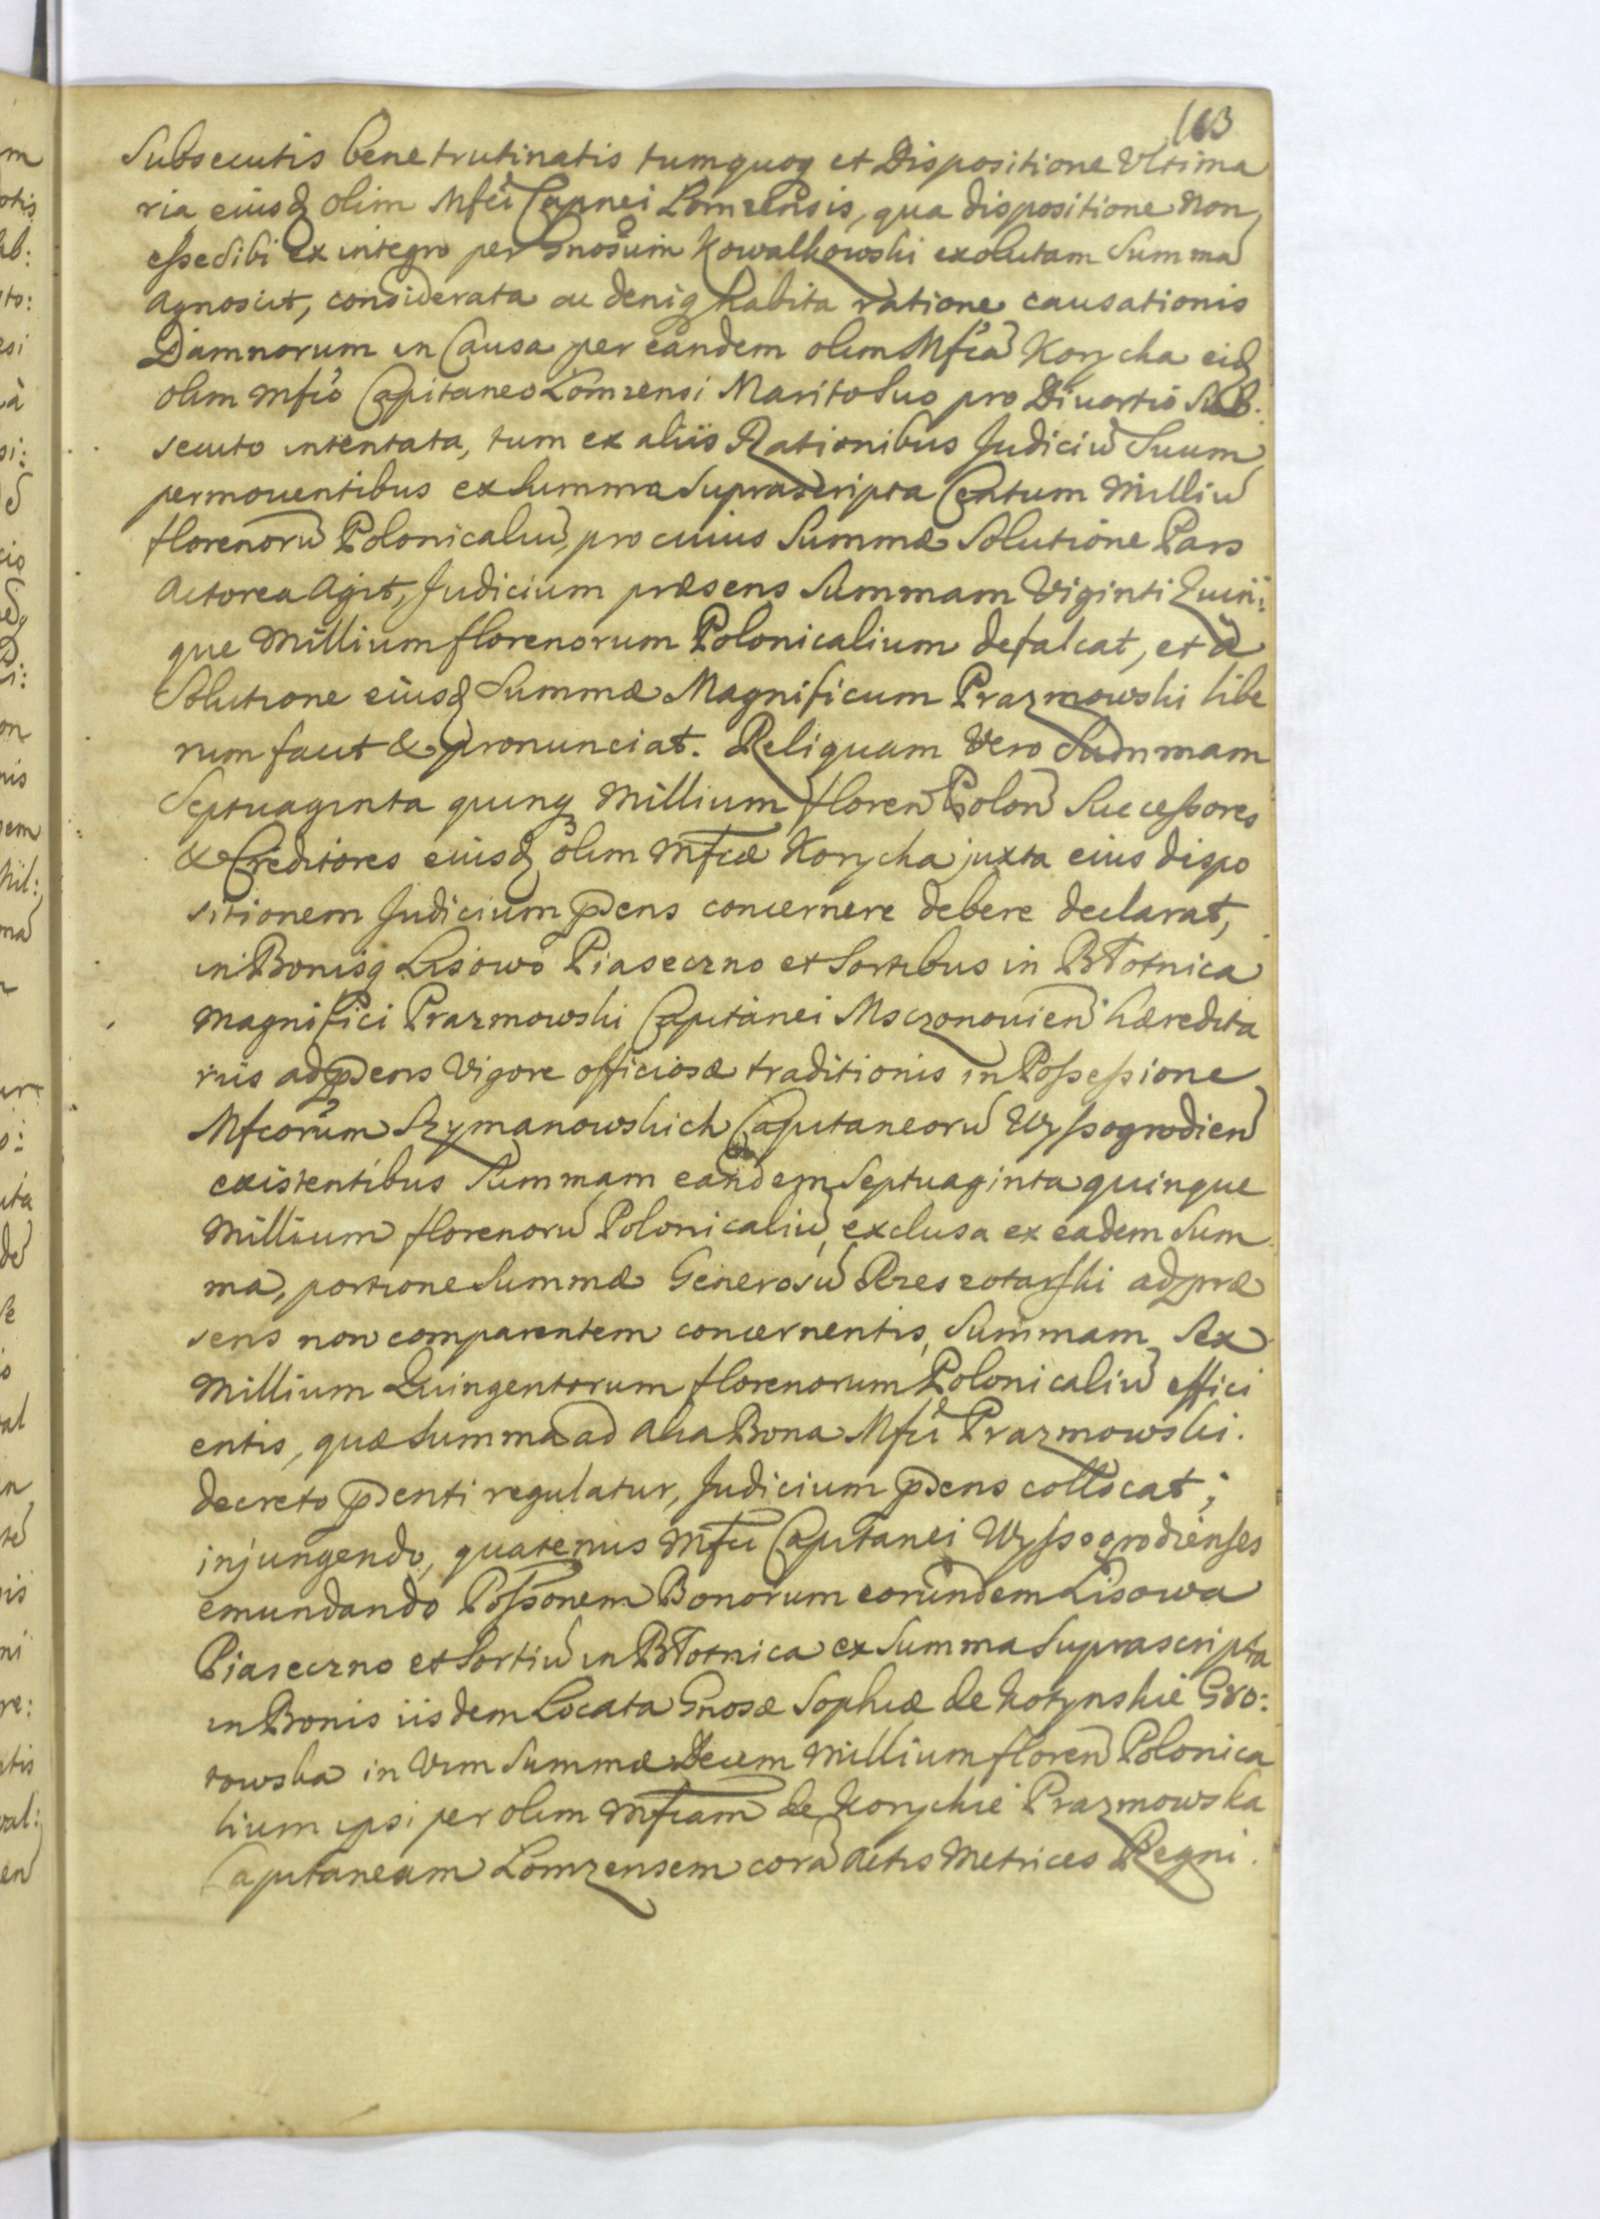 163
Subsecutis bene trutinatis tum quoq et Dispositione Ultima
ria eiusd olim Mfci Capnei Lomzensis, qua dispositione non
esse sibi ex integro per Gnosum Kowalkowski exolutam Summa
agnoscit, considerata ac deniq habita ratione causationis
Damnorum in Causa per eandem olim Mfca Korycka eid
olim Mfco Capitaneo Lomzensi Marito Suo pro Divortio Sub
secuto intentata, tum ex aliis Rationibus Judiciu Suum
permoventibus ex Summa Suprascripta Centum Milliu
florenoru Polonicaliu, pro cuius Summæ Solutione Pars
Actorea Agit, Judicium præsens Summam Viginti Quin:
que Millium florenorum Polonicalium defalcat, et à
Solutione eiusd Summæ Magnificum Prazmowski libe
rum facit & pronunciat. Reliquam Vero Summam
Septuaginta quinq Millium floren Polon Successores
& Creditores eiusd olim Mfcæ Korycka juxta eius dispo
sitionem Judicium pdens concernere debere declarat,
in Bonisq Lisowo Piaseczno et Sortibus in Błotnica
Magnifici Prazmowski Capitanei Msczonovien hæredita
riis ad pdens Vigore officiosæ traditionis in Possessione
Mfcorum Szymanowskich Capitaneoru Wyssogrodien
existentibus Summam eandem Septuaginta quinque
Millium florenoru Polonicaliu, exclusa ex eadem Sum
ma, portione Summæ Generosu Rzeszotarski ad præ
sens non comparentem concernentis, Summam Sex
Millium Quingentorum florenorum Polonicaliu effici
entis, quæ Summa ad alia Bona Mfci Prazmowski.
decreto pdenti regulatur, Judicium pdens collocat;
injungendo, quatenus Mfci Capitanei Wyssogrodienses
emundando Possonem Bonorum eorundem Lisowa
Piaseczno et Sortiu in Błotnica ex Summa Suprascripta
in Bonis iisdem Locata Gnosæ Sophiæ de Kotynskie Gro:
towska in Vim Summæ Decem Millium floren Polonica
lium ipsi per olim Mfcam de Koryckie Prazmowska
Capitaneam Lomzensem cora Actis Metrices Regni.